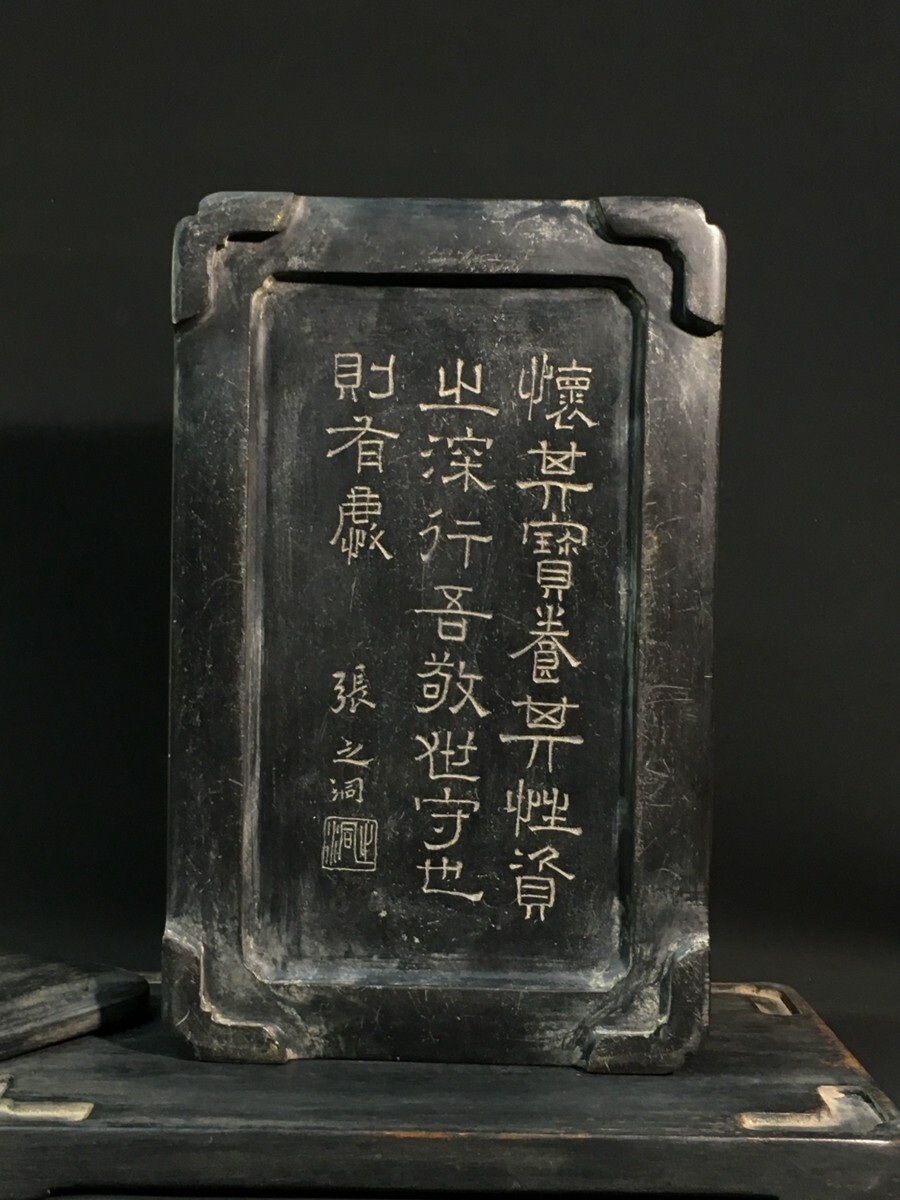 懷其寶養其性資
之深行吾敬世守也
則有
張之洞
之洞